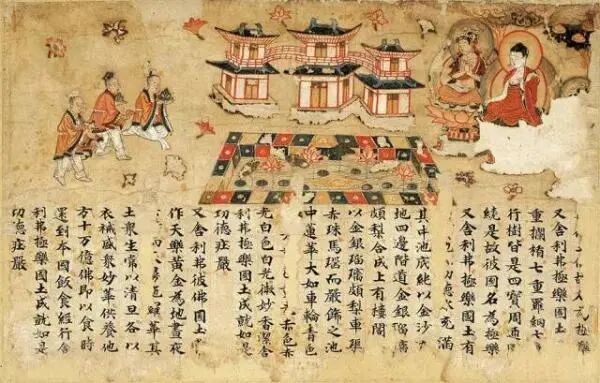 極樂
又舍利弗極樂國土
重欄楯七重羅網七
行樹皆是四寶周迊
繞是故彼國名為極樂
又舍利弗極樂國土有
充滿
其中池底純以金沙
地四邊階道金銀瑠璃
頗梨合成上有樓閣
以金銀瑠璃頗梨車磲
赤珠馬瑙而嚴飾之池
中蓮華大如車輪青色
赤色赤
光白色白光微妙香潔舍
利弗極樂國土成就如是
功德莊嚴
又舍利弗彼佛國土
作天樂黃金為地晝夜
羅華其
土眾生常以清旦各以
衣裓盛眾妙華供養他
方十万億佛即以食時
還到本國飯食經行舍
利弗極樂國土成就如是
功德莊嚴